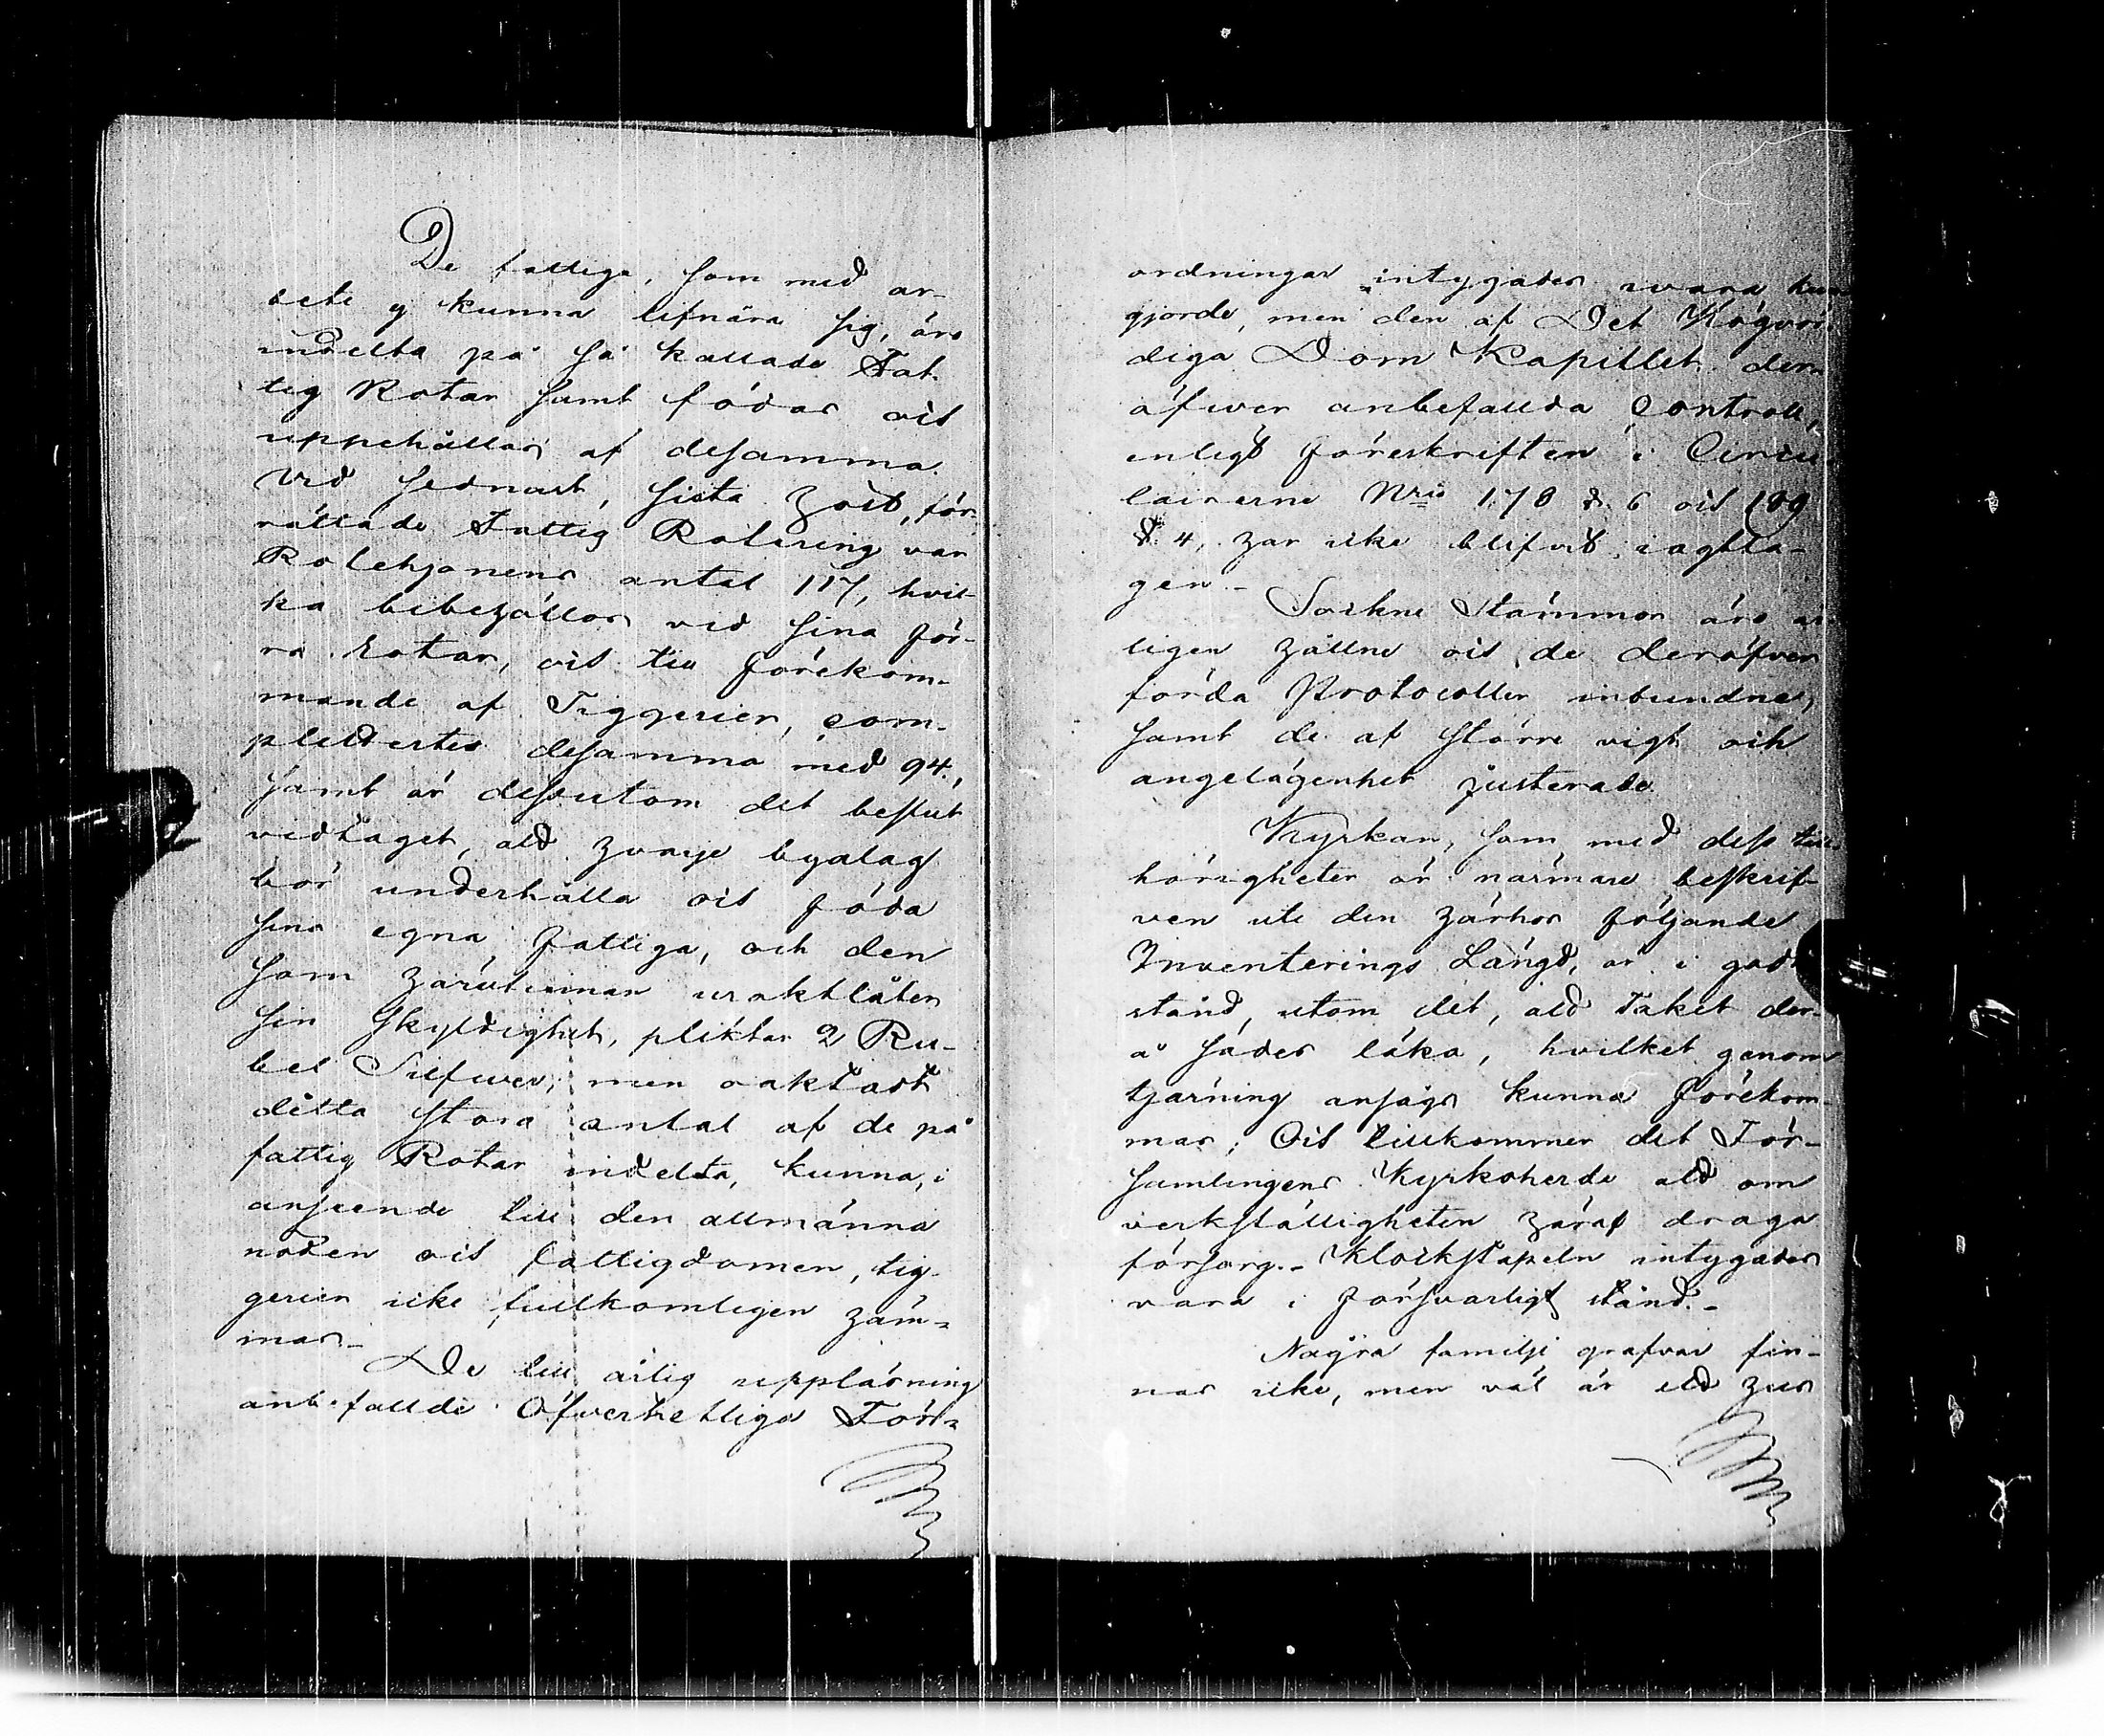 De fattige, som med ar-
bete ej kunna lifnära sig, äro
indelta på så kallade Fat-
tig Rotar samt födas och
uppehållas af desamma.
Vid sednast, sista höst, för-
rättade Fattig Rotering var
Rotehjonens antal 117, hvil-
ka bibehållas vid sina för-
ra Rotar, och till förekom-
mande af Tiggerier, com-
pletertes desamma med 94.,
samt är dessutom det beslut
vidtaget, att hvarje byalag
bör underhålla och föda
sina egna fattiga, och den
som härutinnan uraktlåter
sin skyldighet, pliktar 2 Ru-
bel Silfwer; men oaktadt
detta stora antal af de på
fattig Rotar indelta, kunna, i
anseende till den allmänna
nöden och fattigdomen, tig-
gerier icke fullkomligen häm-
mas.-
De till årlig uppläsning
anbefallde Öfverhetliga För-
ordningar intygades wara kun
gjorde, men den af Det Högvör-
diga Dom Kapitlet der-
öfwer anbefallda Controll,
enligt föreskriften i Circu-
lairerne Nris 178 § 6 och 189
§ 4, har icke blifvit iagtta-
gen.-
Sockne Stämmor äro år-
ligen hållne och de deröfver
förda Protocoller inbundne,
samt de af större vigt och
angelägenhet justerade.
Kyrkan, som med dess till-
hörigheter är närmare beskrif-
ven uti den härhos följande
Inventerings Längd, är i godt
stånd, utom det, att taket der-
å sades läka, hvilket genom
tjärning ansågs kunna förekom-
mas; Och tillkommer det För-
samlingens Kyrkoherde att om
verkställigheten häraf draga
försorg.- Klockstapeln intygades
vara i försvarligt stånd.-
Några familje grafvar fin-
nas icke, men väl är ett hus